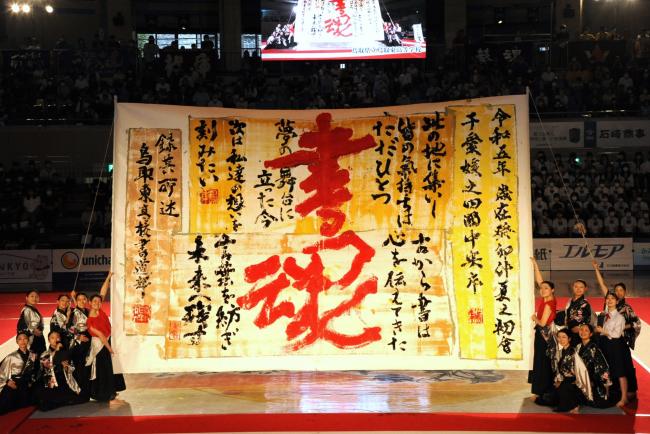 令和五年歳在癸卯仲夏之初會
于愛媛之四國中央市
此地に集い
皆の気持ちは
ただひとつ
夢の舞台に
立った今
次は私達の想いを
刻みたい
書の魂
古から書は
心を伝えてきた
言葉を紡ぎ
未来へ残す
鳥取東高校書道部
鳥取県立鳥取東高等学校
unicharm
エルモア
石崎商事